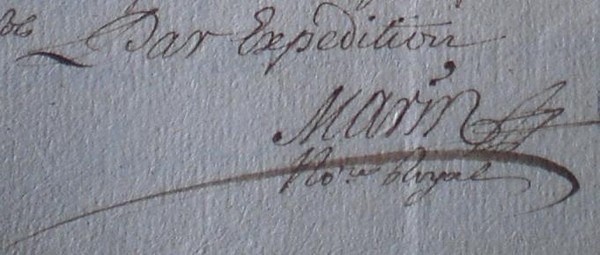 Par Expedition
Marin
No.re Royal